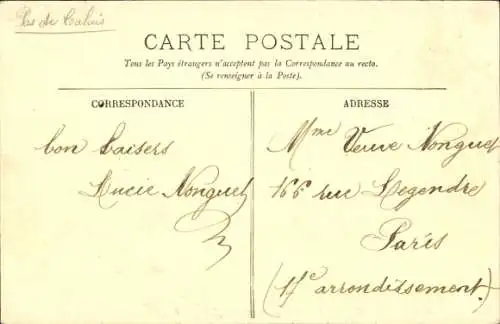 Pas de Calais
CARTE POSTALE
Tous les Pays étrangers n'acceptent pas la Correspondance au recto.
(Se renseigner à la Poste).
CORRESPONDANCE
bon baisers
Lucie Nonguet
ADRESSE
Mme Veuve Nonguet
166 rue Legendre
Paris
(17e arrondissement)